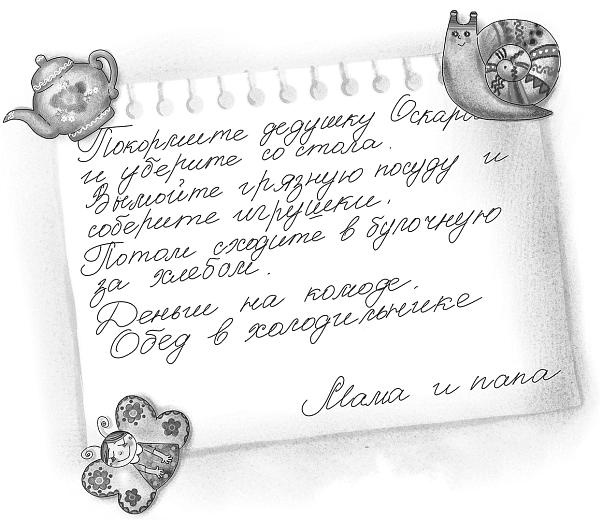 Покормите дедушку Оскара
и уберите со стола.
Вымойте грязную посуду и
соберите игрушки.
Потом сходите в булочную
за хлебом.
Деньги на комоде.
Обед в холодильнике
Мама и папа